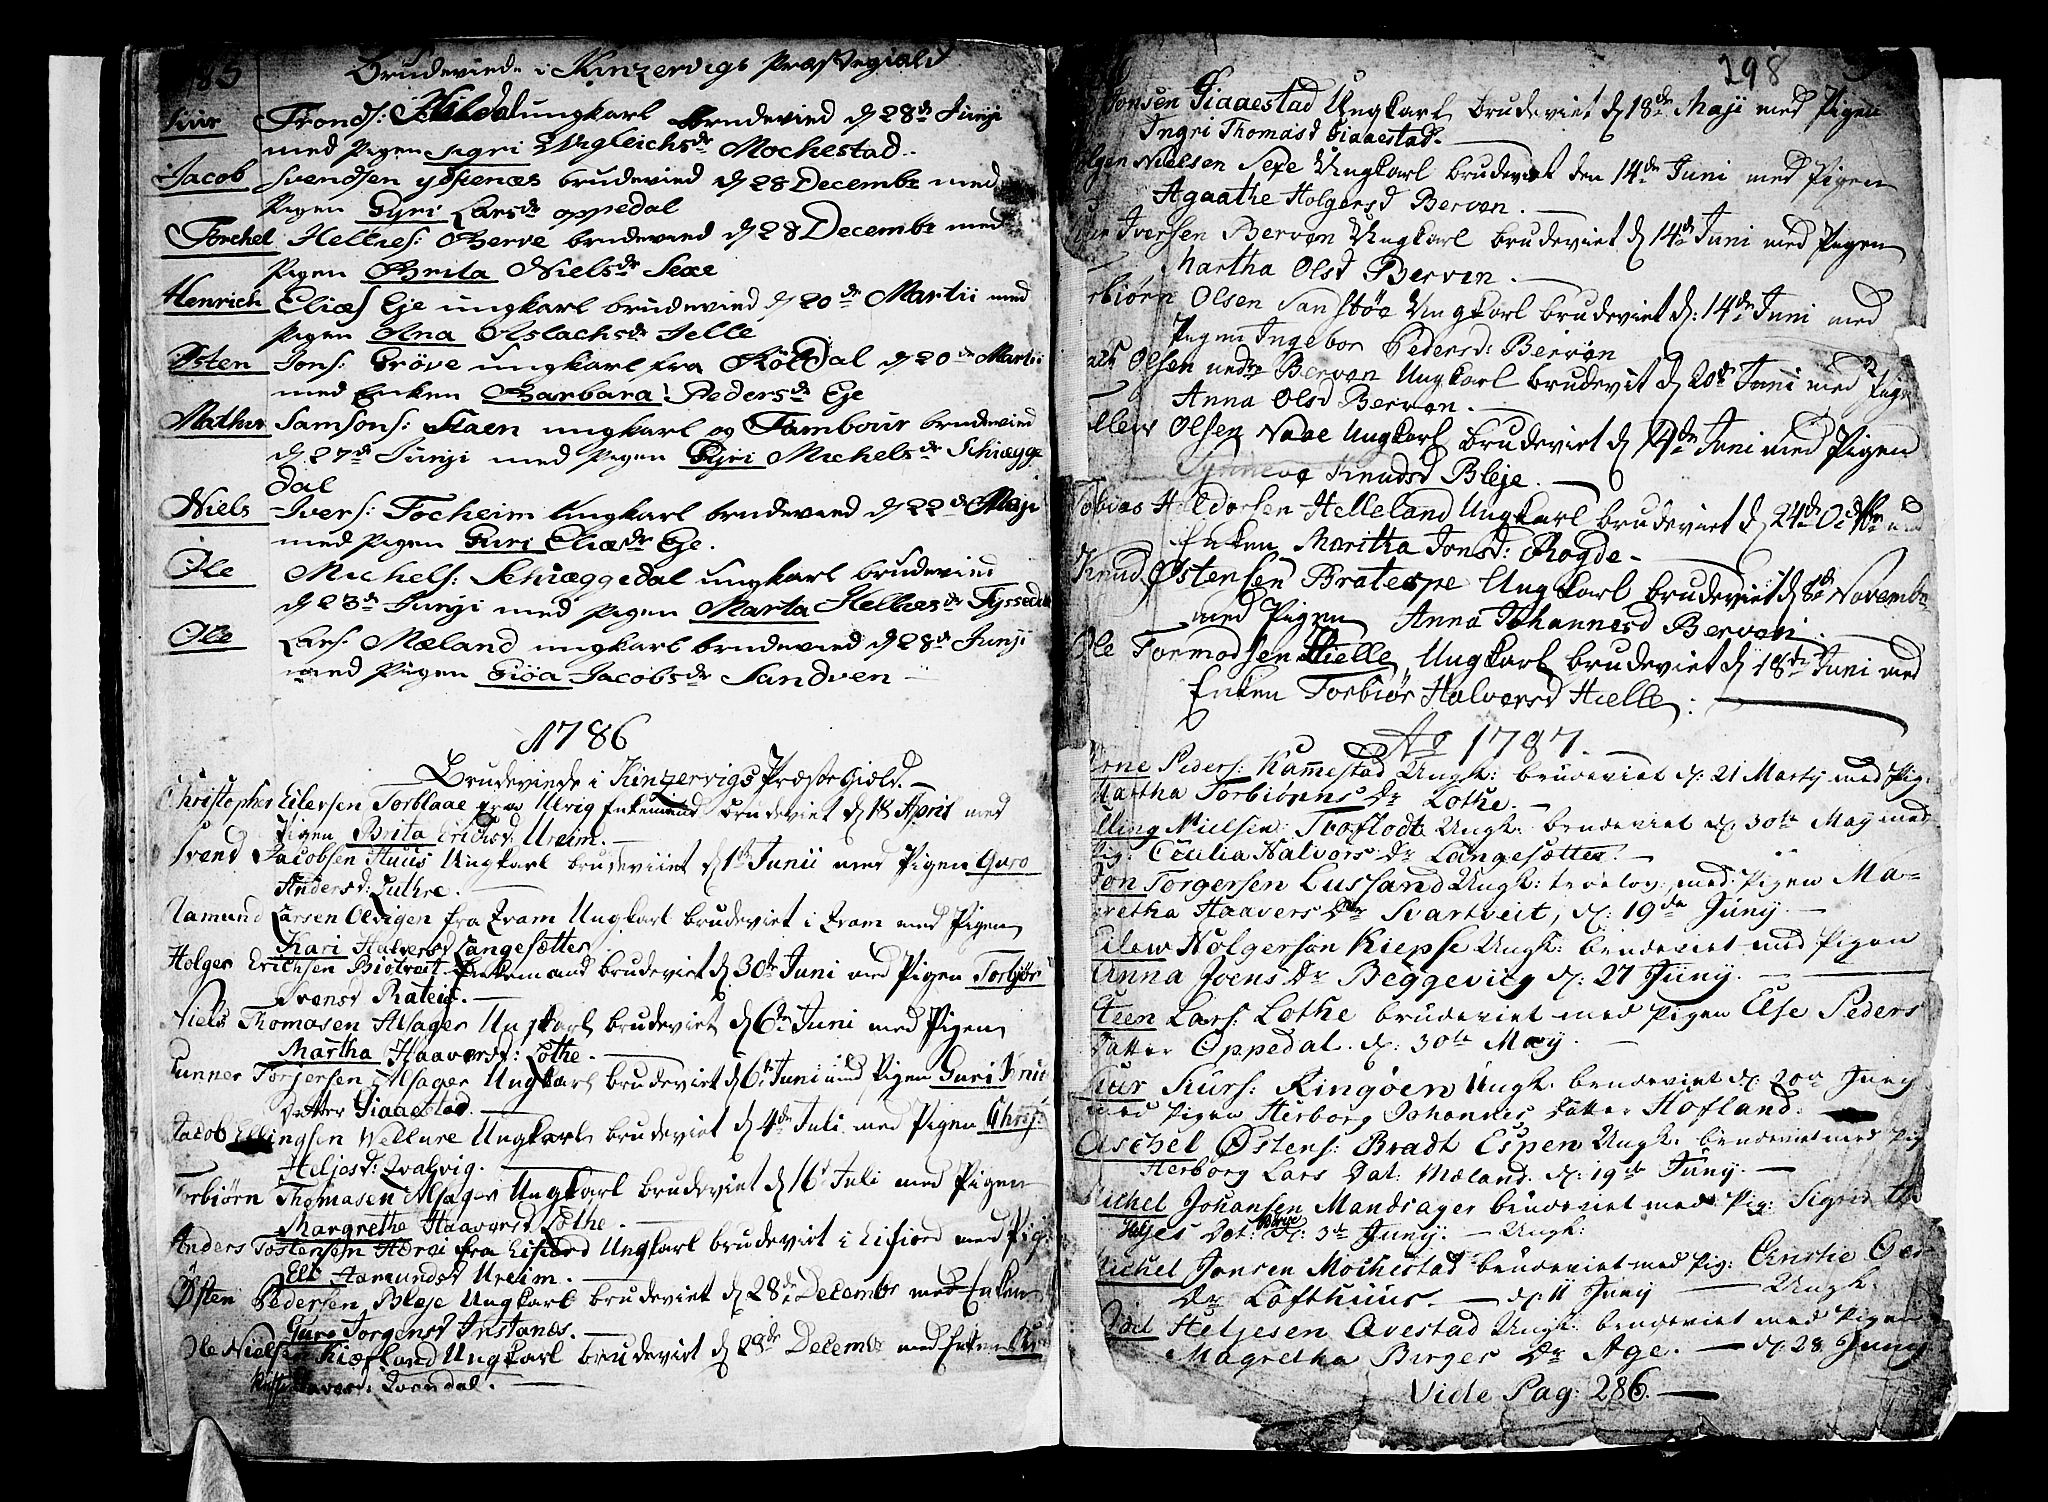 85 Brudeviede i Kinzervigs Præstegield
Siur Tronds: Hildal ungkarl brudevied d 28de Junji
med Pigen Sigri Wigleichsdr Mochestad
Jacob Svendsen ystenæs brudevied d 28 Decembr med
Pigen Gyri Larsdr oppedal
Torchel Hellies: Berve brudevied d 28 Decembr med
Pigen Brita Nielsdr Sexe
Henrich Eliæs Eje ungkarl brudevied d 20de Martii med
Pigen Anna Aslachsdr Jelle
Østen Jons: Grøve ungkarl fra Røldal d 20de Martii
med Enken Barbara Pedersdr Eje
Mathis Samsons: Staen ungkarl og Tambour brudevied
d 27de Junji med Pigen Gyri Michelsdr Schiægge
dal
Niels Ivers: Tocheim Ungkarl brudevied d 22de Maji
med Pigen Guri Eliædr Eje.
Ole Michels: Schiæggedal ungkarl brudevied
d 23de Junji med Pigen Marta Helliesdr Tyssedal
Ole Lars: Mæland ungkarl brudevied d 28de Junji
med Pigen Giøa Jacobsdr Sandven
1786
Brudeviede i Kinzervigs Præstegiæld.
Christopher Eilersen Torblaae fra Ulvig Enkemand brudeviet d 18 April med
Pigen Brita Erichsd Ureim.
Svend Jacobsen Huus Ungkarl brudeviiet d 1te Junii med Pigen Guro
Andersd: Luthre.
Aamund Larsen Olvigen fra Qvam Ungkarl brudeviet i Qvam med Pigen
Kari Halversd Langesætter
Holger Erichsen Biotveit Enkemand brudeviet d 30te Juni med Pigen Torbjør
Svensd Rateig.
Niels Thomasen Alsager Ungkarl brudeviet d 6te Juni med Pigen
Martha Haaversd: Lothe.
Gunner Torjersen Alsager Ungkarl brudeviet d 6te Juni med Pigen Guri Knu
Datter Siaaestad.
Jacob Ellingsen Wellure Ungkarl brudeviet d 4de Juli med Pigen Chris:
Heljesd: Qvalvig.
Torbiørn Thomasen Alsager Ungkarl brudeviet d 16d Juli med Pigen
Margrethe Haaversd Lothe.
Anders Tostensen fra Eifiord Ungkarl brudeviet i Eifiord med Pig
Eli Aamundsd Ureim.
Østen Pedersen Bleje Ungkarl brudeviet d 28de Decembr med Enken
Guro Jorgensd Instanes.
Ole Nielsen Kiæfland Ungkarl brudeviet d 29de Decembr med Enken
Haversd: Qvandal.
198
Jonsen Siaaestad Ungkarl brudeviet d 18de Maji med Pigen
Ingri Thomasd Siaaestad.
Nielsen Sexe Ungkarl brudeviet den 14de Juni med Pigen
Agaathe Holgersd Berven.
Iversen Berven Ungkarl brudeviet d 14de Juni med Pigen
Martha Olsd Berven.
rbiørn Olsen Sanstøe Ungkarl brudeviet d: 14de Juni med
Pigen Ingebor Pedersd: Berven
Olsen undre Berven Ungkarl brudeviet d 20de Juni med Pigen
Anna Olsd Berven.
Ellev Olsen Naae Ungkarl brudeviet d 24de Juni med Pigen
Synneve Knudsd Bleje.
Tobias Heldorsen Helleland Ungkarl brudeviet d 24de Octbr med
Enken Maritha Jonsd: Rogde
Knud Østensen Bratespe Ungkarl brudeviet d 8de Novembr
med Pigen Anna Johannesd Berven.
Ole Tormodsen Hielle Ungkarl brudeviet d 18de Juni med
Enken Torbiør Halversd Hielle:
Ao 1787.
Arne Peders: Hammestad Ungk: brudeviet d: 21 Marty med Pig:
Martha Torbiørns Dr Lothe.
Elling Nielsen: Troflodt Ungk: brudeviet d: 30te May med
Pig: Cecilia Halvors Dr Langesætter.
Jon Torgersen Lussand Ungk: trolov: med Pigen Ma-
gretha Haavers Dr Svartveit, d: 19de Juny.
Eilew Holgersøn Kiepse Ungk: brudeviet med Pigen
Anna Joens Dr Beggevitg d: 27 Juny.
Steen Lars: Lothe brudeviet med Pigen Else Peders
Datter Oppedal. d: 30te May.
Siur Siurs: Ringøen Ungk: brudeviet d: 20de Juny
med Pigen Herborg Johannes Datter Hofland.
Aschel Østens: Bradt Espen Ungk: brudeviet med Pig
Herborg Lars Dat: Mæland. d: 19de Juny.
Michel Johansen Mandsager brudeviet med Pig: Sigrid
Heljes Dot: Børve d: 3de Juny. Ungk:
Michel Jonsen Mochestad brudeviet med Pig: Anstie
Dr Lofthuus. d: 11 Juny Ungk:
Heljesen Avestad Ungk: brudeviet med Pigen
Magretha Birges Dr Age. d: 28 Juny
Vide Pag: 286.